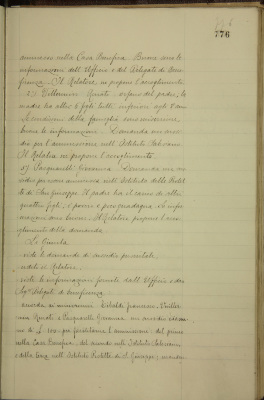 776
ammesso nella Casa Benefica. Buone sono le
informazioni dell'Ufficio e del Delegato di Bene-
ficenza. Il Relatore ne propone l'accoglimento.
Renato orfano del padre, la
madre ha altri 6 figli tutti inferiori agli 8 anni
Le condizioni della famiglia sono miserrime,
buone le informazioni. Domanda un sussi-
dio per l'ammissione nell'Istituto
Il Relatore ne propone l'accoglimento.
Pasquarelli Giovanna. Domanda un sus-
sidio per essere ammessa nell'Istituto delle
di San Giuseppe. Il padre ha a carico altri
quattro figli, è povero e poco guadagna, le infor-
mazioni sono buone. Il Relatore propone l'acco-
glimento della domanda.
La Giunta
viste le domande di sussidio presentate,
udito il Relatore,
viste le informazioni fornite dall'Ufficio e dai
Delegati di beneficenza,
accorda ai minorenni Francesco,
Renato e Pasquarelli Giovanna un sussidio
di L. 100 per facilitarne l'ammissione del primo
nella Casa Benefica, del secondo nell'Istituto
e della terza nell'Istituto di S. Giuseppe;